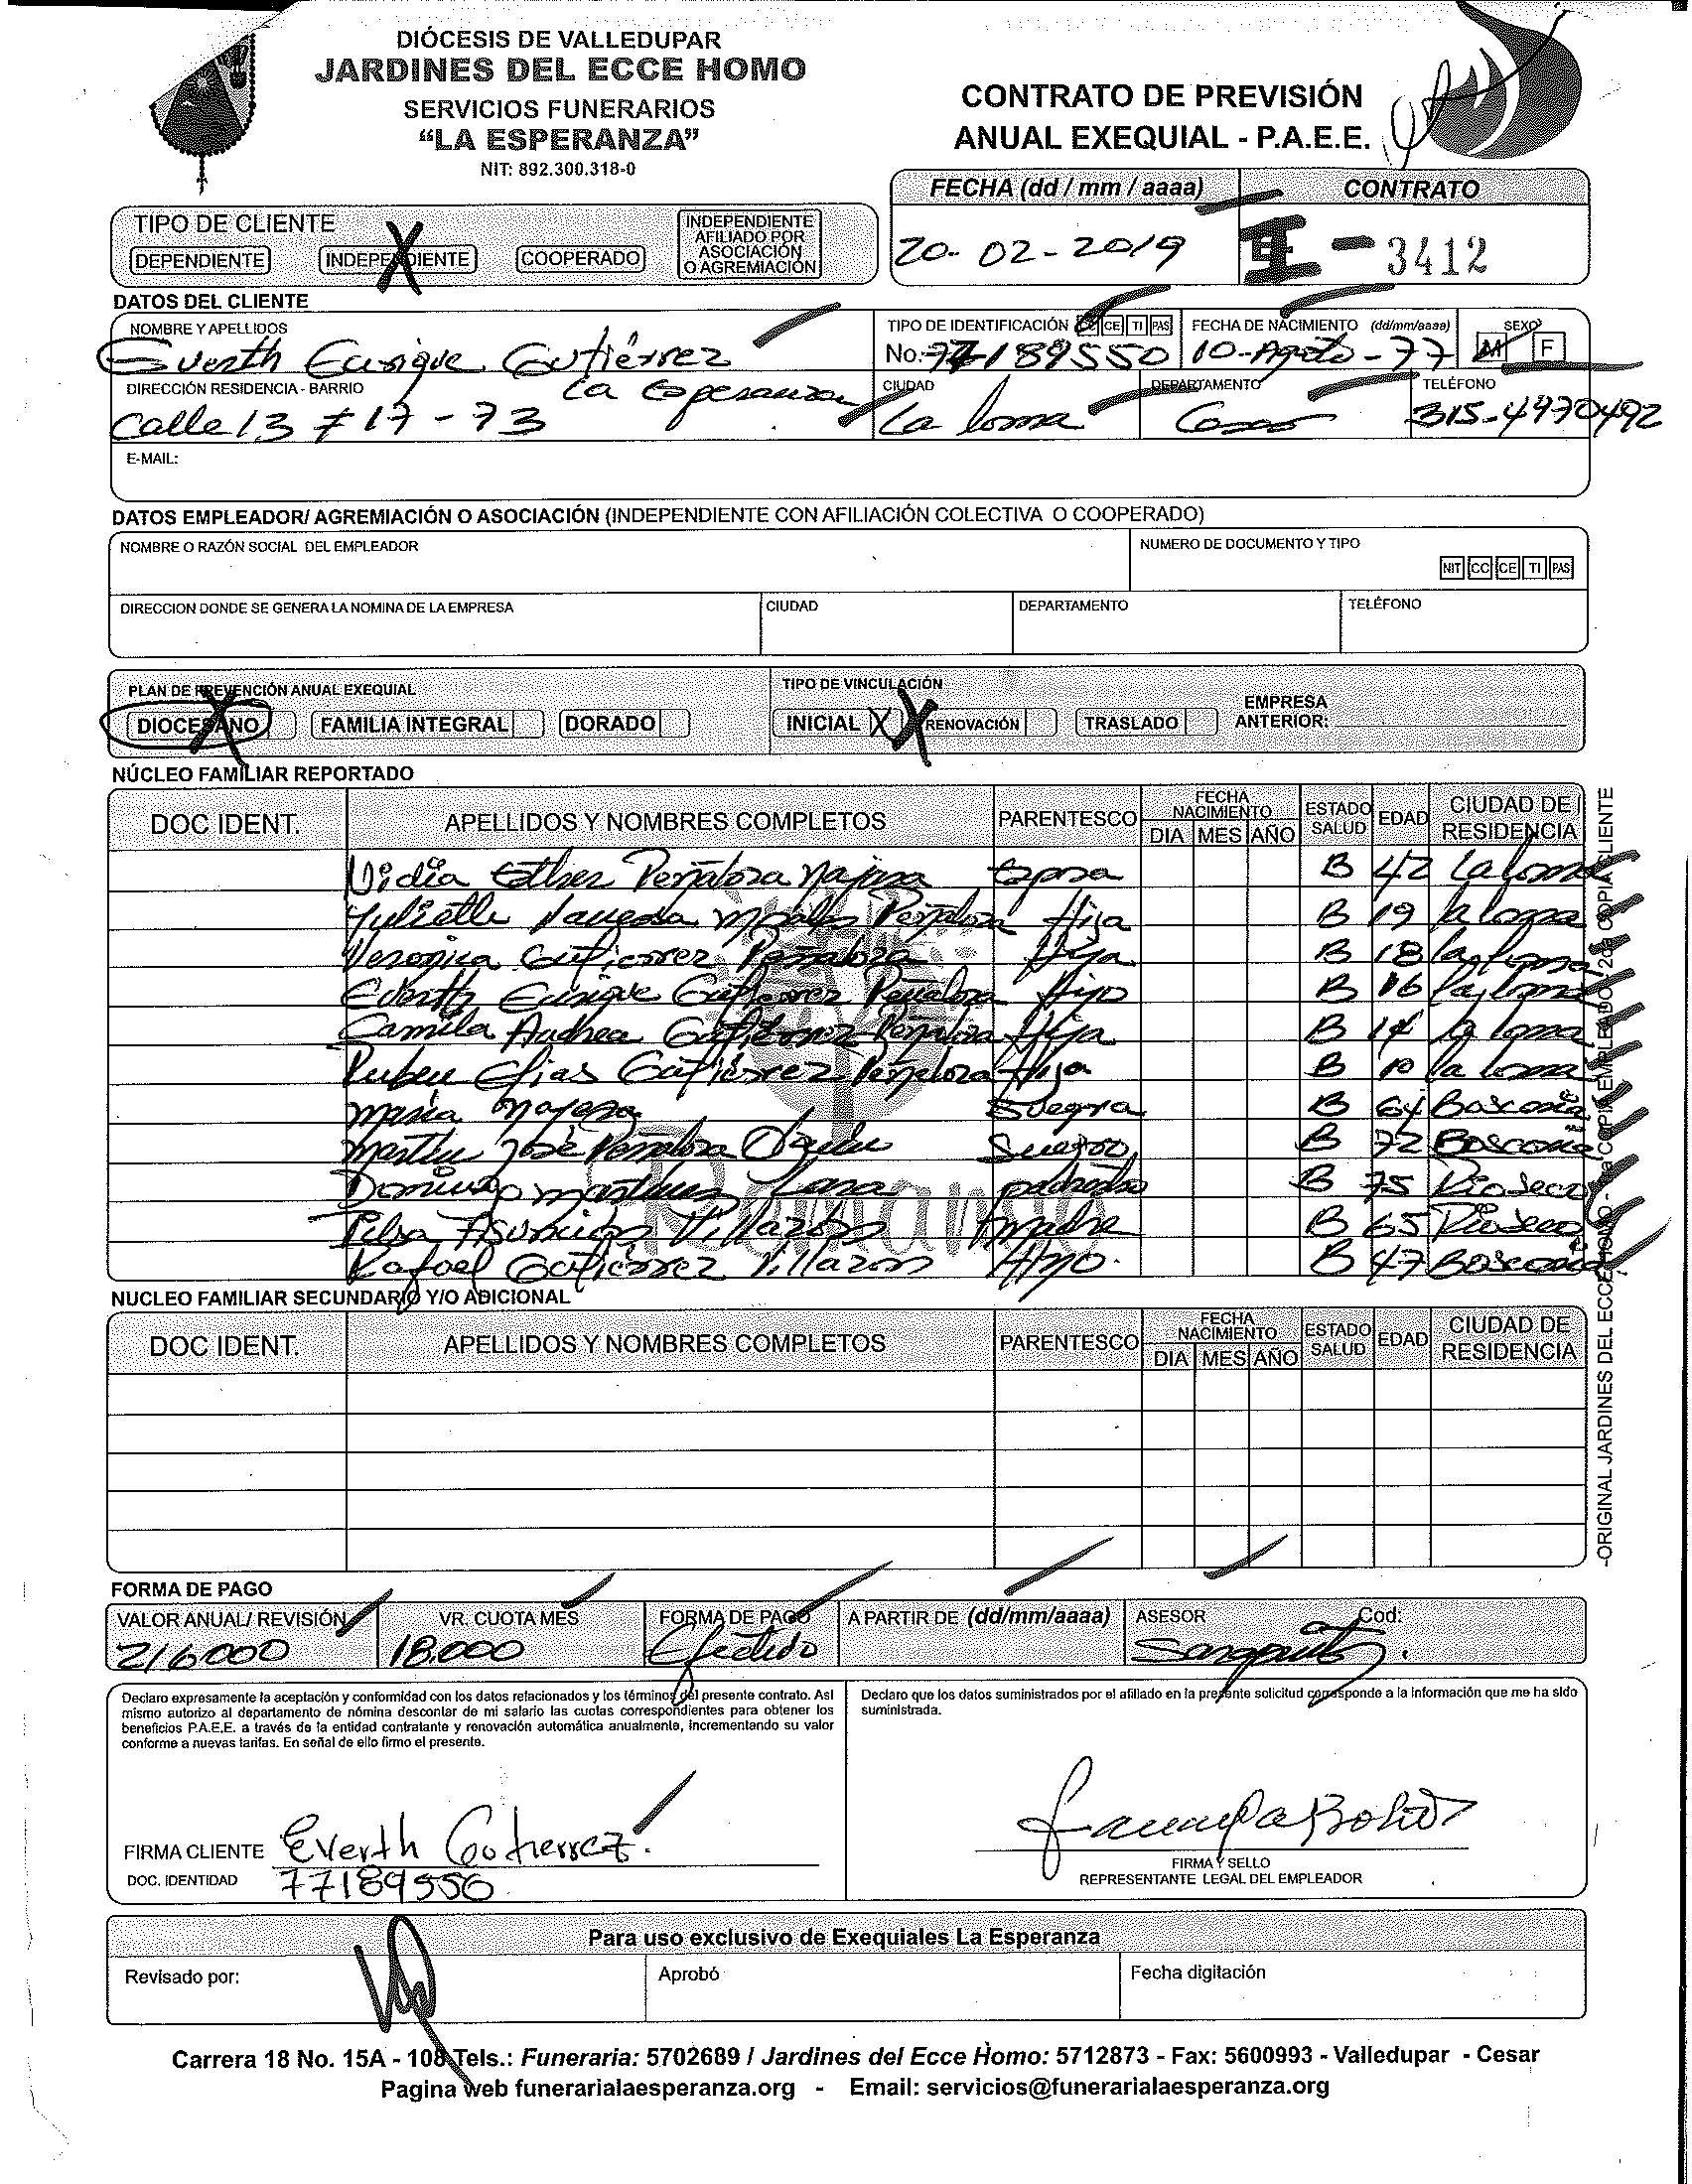 DIÓCESIS DE VALLEDUPAR
JARDINES DEL ECCE HOMO
SERVICIOS FUNERARIOS
“LA ESPERANZA”
NIT: 892.300.318-0
CONTRATO DE PREVISIÓN
ANUAL EXEQUIAL - P.A.E.E.
TIPO DE CLIENTE
DEPENDIENTE INDEPENDIENTE COOPERADO INDEPENDIENTE AFILIADO POR ASOCIACIÓN O AGREMIACIÓN
FECHA (dd / mm / aaaa) CONTRATO
20-02-2019 I - 3412
DATOS DEL CLIENTE
NOMBRE Y APELLIDOS TIPO DE IDENTIFICACIÓN CE TI PAS FECHA DE NACIMIENTO (dd/mm/aaaa) SEXO
Everth Enrique Gutiérrez No: 77189550 10-Agosto-77 M F
DIRECCIÓN RESIDENCIA - BARRIO CIUDAD DEPARTAMENTO TELÉFONO
Calle 13 # 17 - 73 La Esperanza La loma 315-4970492
E-MAIL:
DATOS EMPLEADOR/ AGREMIACIÓN O ASOCIACIÓN (INDEPENDIENTE CON AFILIACIÓN COLECTIVA O COOPERADO)
NOMBRE O RAZÓN SOCIAL DEL EMPLEADOR NUMERO DE DOCUMENTO Y TIPO
NIT CC CE TI PAS
DIRECCION DONDE SE GENERA LA NOMINA DE LA EMPRESA CIUDAD DEPARTAMENTO TELÉFONO
PLAN DE PREVENCIÓN ANUAL EXEQUIAL TIPO DE VINCULACIÓN
DIOCESANO FAMILIA INTEGRAL DORADO INICIAL X RENOVACIÓN TRASLADO EMPRESA ANTERIOR:
NÚCLEO FAMILIAR REPORTADO
DOC IDENT. APELLIDOS Y NOMBRES COMPLETOS PARENTESCO FECHA NACIMIENTO DIA MES AÑO ESTADO SALUD EDAD CIUDAD DE RESIDENCIA
Esther Peñaloza Najera Esposa B 42 La loma
Peñaloza Hija B 19 la loma
Veronica Gutierrez Peñaloza Hija B 18 la loma
Everth Enrique Gutierrez Peñaloza Hijo B 16 la loma
Camila Andrea Gutierrez Peñaloza Hija B 14 la loma
Ruben Elias Gutiérrez Peñaloza B 10 la loma
Maria Najera Suegra B 64 Bosconia
José Peñaloza Suegro B 72 Bosconia
Domingo Martinez Lara padrastro B 75 Rioseco
Asuncion Villazon madre B 65 Rioseco
Rafael Gutierrez Villazon B 47 Bosconia
NUCLEO FAMILIAR SECUNDARIO Y/O ADICIONAL
DOC IDENT. APELLIDOS Y NOMBRES COMPLETOS PARENTESCO FECHA NACIMIENTO DIA MES AÑO ESTADO SALUD EDAD CIUDAD DE RESIDENCIA
FORMA DE PAGO
VALOR ANUAL/ REVISIÓN VR. CUOTA MES FORMA DE PAGO A PARTIR DE (dd/mm/aaaa) ASESOR Cod:
216000 18.000 Efectido
Declaro expresamente la aceptación y conformidad con los datos relacionados y los términos del presente contrato. Asi
mismo autorizo al departamento de nómina descontar de mi salario las cuotas correspondientes para obtener los
beneficios P.A.E.E. a través de la entidad contratante y renovación automática anualmente, incrementando su valor
conforme a nuevas tarifas. En señal de ello firmo el presente.
Declaro que los datos suministrados por el afiliado en la presente solicitud corresponde a la información que me ha sido
suministrada.
FIRMA CLIENTE Everth Gutierrez
DOC. IDENTIDAD 77189550
FIRMA Y SELLO
REPRESENTANTE LEGAL DEL EMPLEADOR
Para uso exclusivo de Exequiales La Esperanza
Revisado por: Aprobó Fecha digitación
Carrera 18 No. 15A - 108 Tels.: Funeraria: 5702689 / Jardines del Ecce Homo: 5712873 - Fax: 5600993 - Valledupar - Cesar
Pagina web funerarialaesperanza.org - Email: servicios@funerarialaesperanza.org